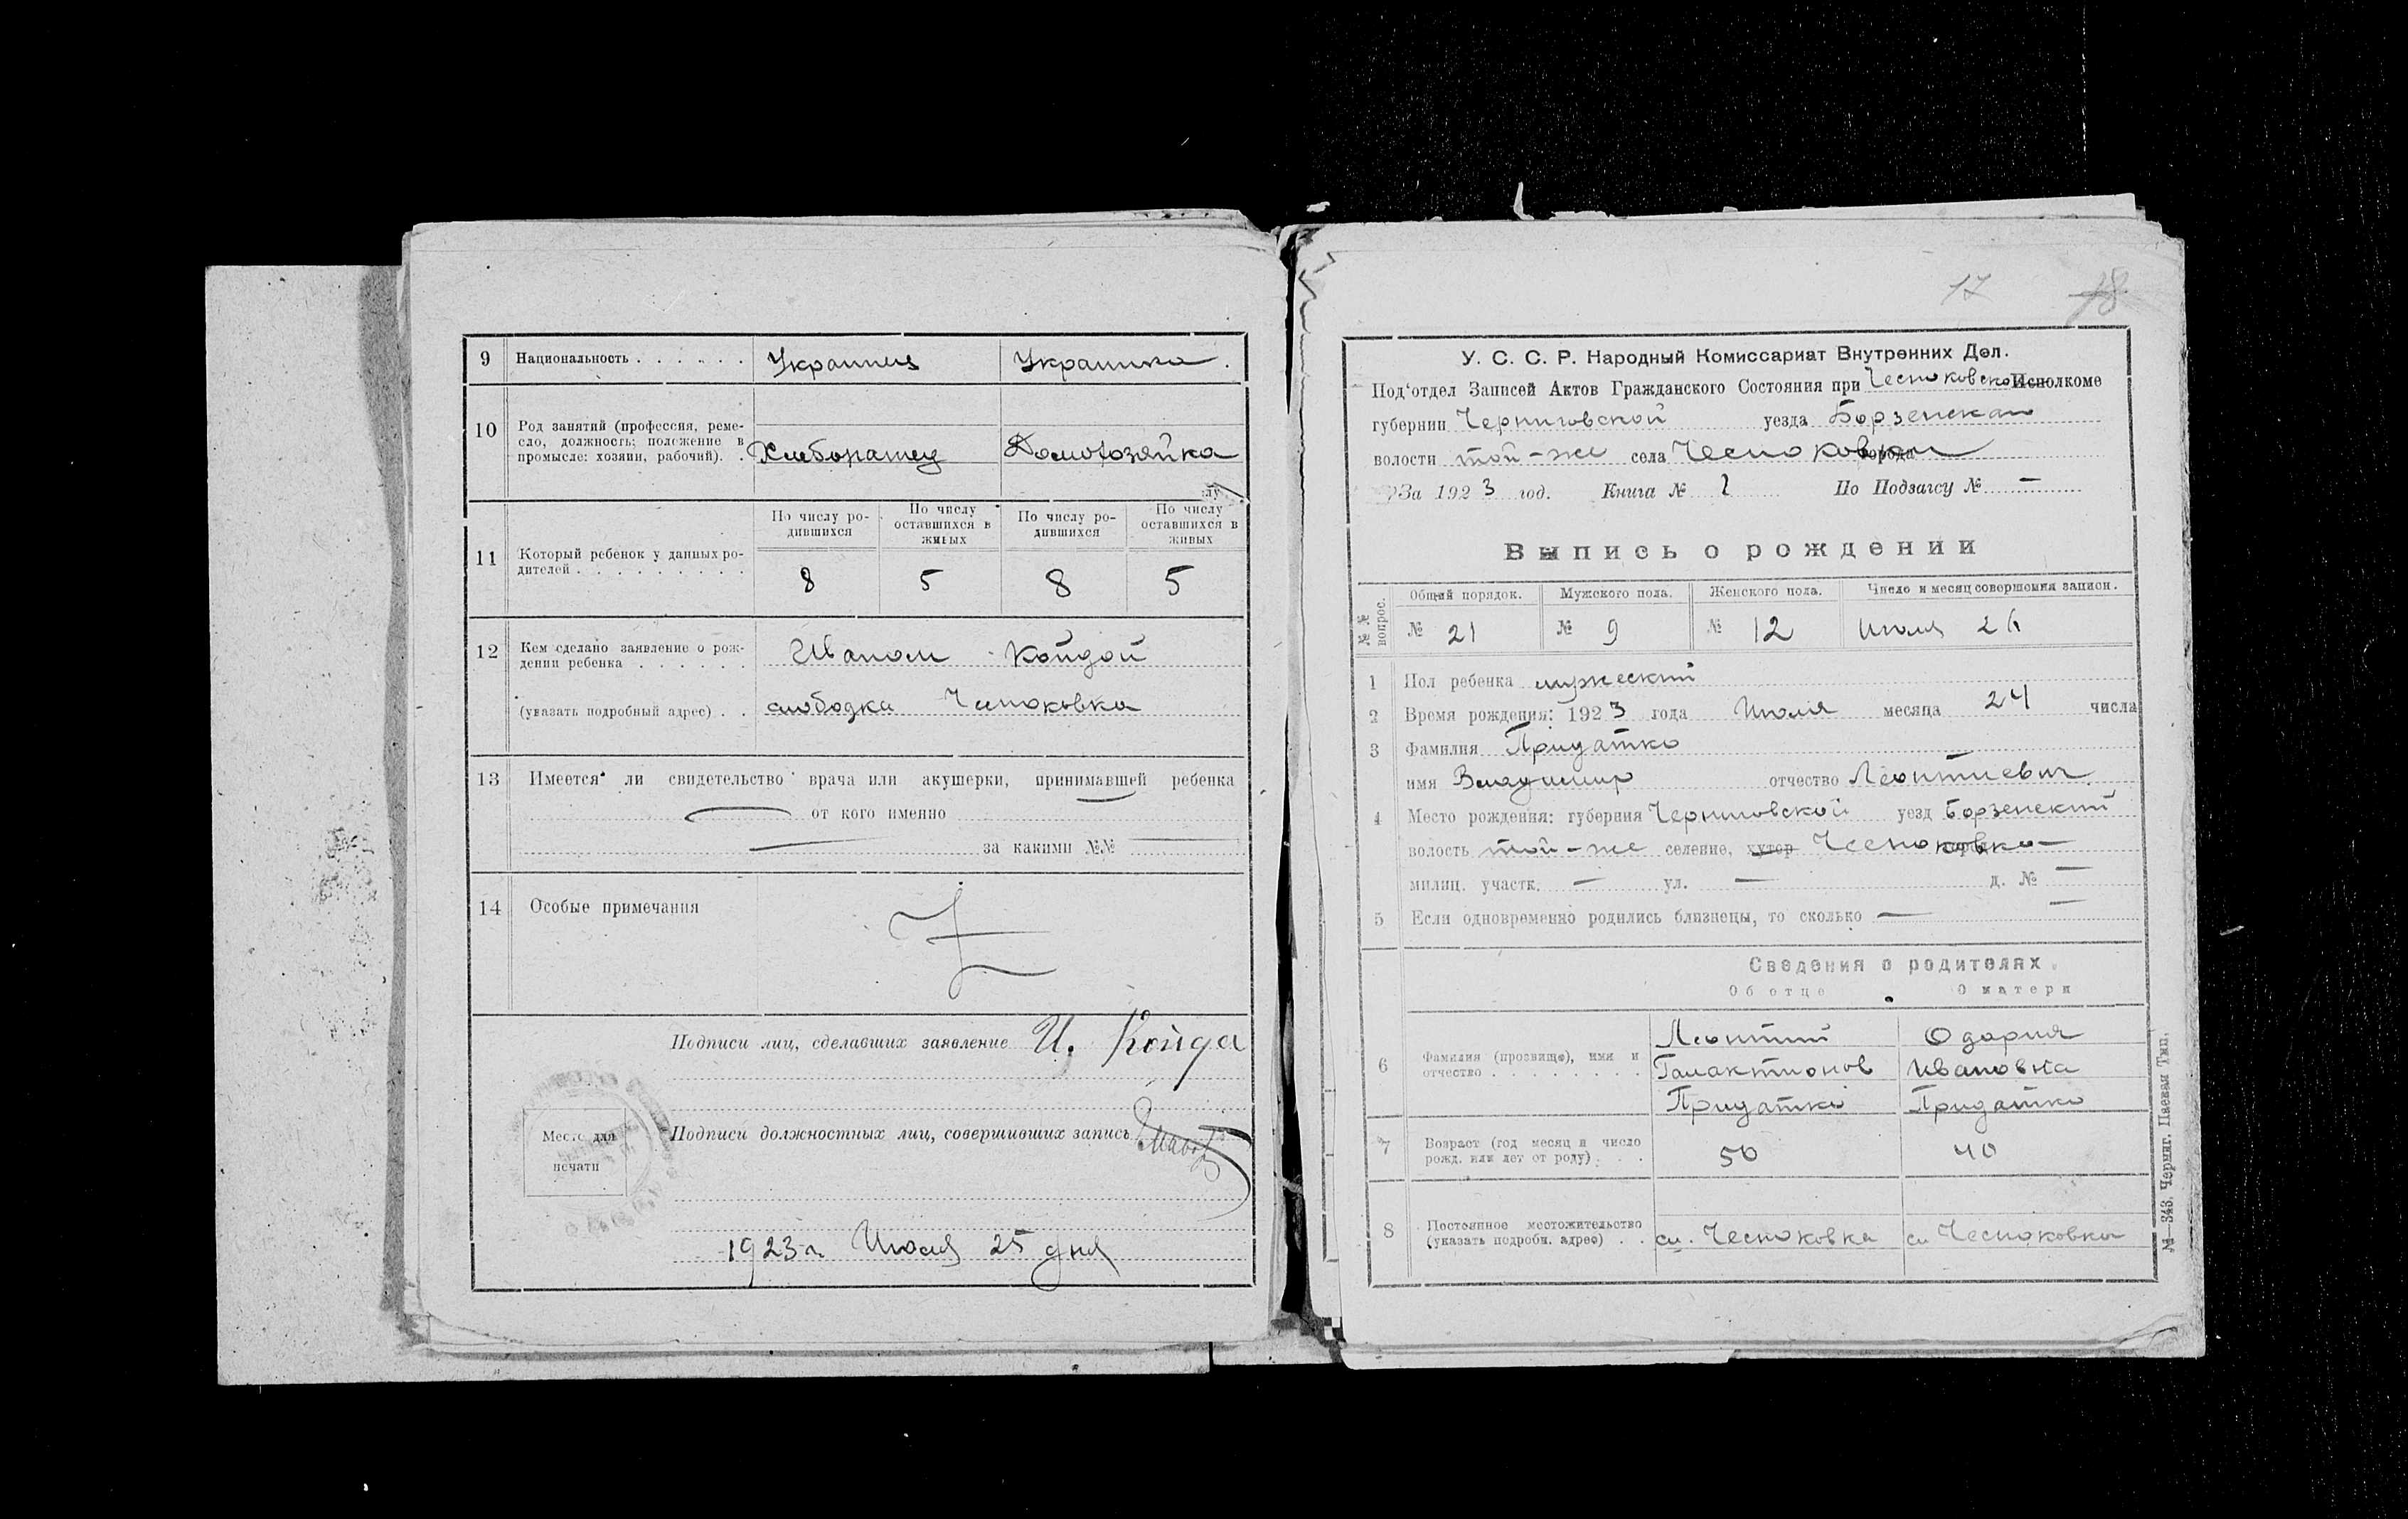 9 Национальность . . . . . . Украинец Украинка.
10 Род занятий (профессия, реме-
сло, должность; положение в
промысле: хозяин, рабочий). . Хлеборатец Домохозяйка
11 Который ребенок у данных ро-
дителей . . . . . . . . .
По числу ро-
дившихся
По числу
оставшихся в
живых
По числу ро-
дившихся
По числу
оставшихся в
живых
8 5 8 5
12 Кем сделано заявление о рож-
дении ребенка . . . . . . Иваном Койдой
(указать подробный адрес) . . слободка Чесноковка
13 Имеется ли свидетельство врача или акушерки, принимавшей ребенка
— от кого именно —
— за какими №№ —
14 Особые примечания
Подписи лиц, сделавших заявление И. Койда
Место для
печати
Подписи должностных лиц, совершивших запись
1923 г. Июля 25 дня
17 18
У. С. С. Р. Народный Комиссариат Внутренних Дел.
Под'отдел Записей Актов Гражданского Состояния при Чесноковско Исполкоме
губернии Черниговской уезда Борзенскаго
волости той-же села Чесноковки города
За 1923 год. Книга № 1 По Подзагсу № —
Выпись о рождении
№ № вопрос. Общий порядок. Мужского пола. Женского пола. Число и месяц совершения записи.
№ 21 № 9 № 12 Июля 26
1 Пол ребенка мужеский
2 Время рождения: 1923 года Июля месяца 24 числа
3 Фамилия Придатко
имя Владимир отчество Леонтиевич
4 Место рождения: губерния Черниговской уезд Борзенский
волость той-же селение, хутор Чесноковка
милиц. участк. — ул. — д. № —
5 Если одновременно родились близнецы, то сколько — —
Сведения о родителях.
Об отце О матери
6 Фамилия (прозвище), имя и
отчество . . . . . . . .
Леонтий Одария
Галактионов Ивановна
Придатко Придатко
7 Возраст (год месяц и число
рожд. или лет от роду) . . . 50 40
8 Постоянное местожительство
(указать подробн. адрес) . . сл. Чесноковка сл. Чесноковка
№ 343. Черниг. Паевая Тип.